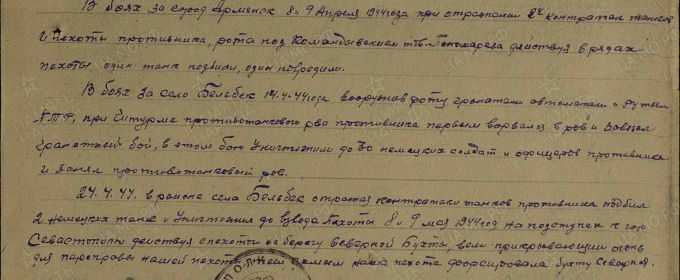 В боях за город Армянск 8 и 9 Апреля 1944 года при отражении контратак танков
и пехоты противника, рота под командыванием тов. Пономарева действуя в рядах
пехоты один танк подбили, один повредили.
В боях за село Бельбек 14.4.44 года вооружив роту гранатами автоматами и Ружьями
П.Т.Р. при штурме противотанкового рва противника первым ворвался в ров и завязал
гранатный бой, в этом бою уничтожили до 30 немецких солдат и офицеров противника
и занял противотанковый ров.
24.4.44. в районе села Бельбек отражая контратаки танков противника подбил
2 немецких танка и уничтожил до взвода пехоты 8 и 9 мая 1944 год на подступах к гор
Севастополь действуя с пехотой на берегу северной Бухты, вели прикрывающий огонь
для переправы нашей пехоты, тем самым наша пехота форсировала бухту Северная.